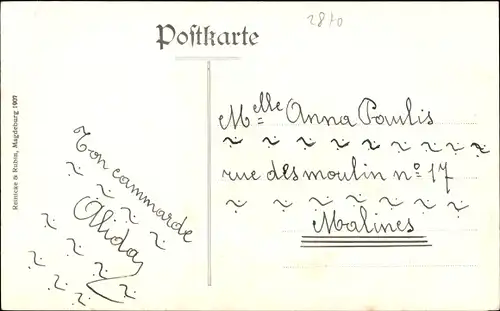 2870
Postkarte
Reinicke & Rubin, Magdeburg 1907
Mlle Anna Paulis
rue des moulin no 17
Malines
Ton cammarde
Alida